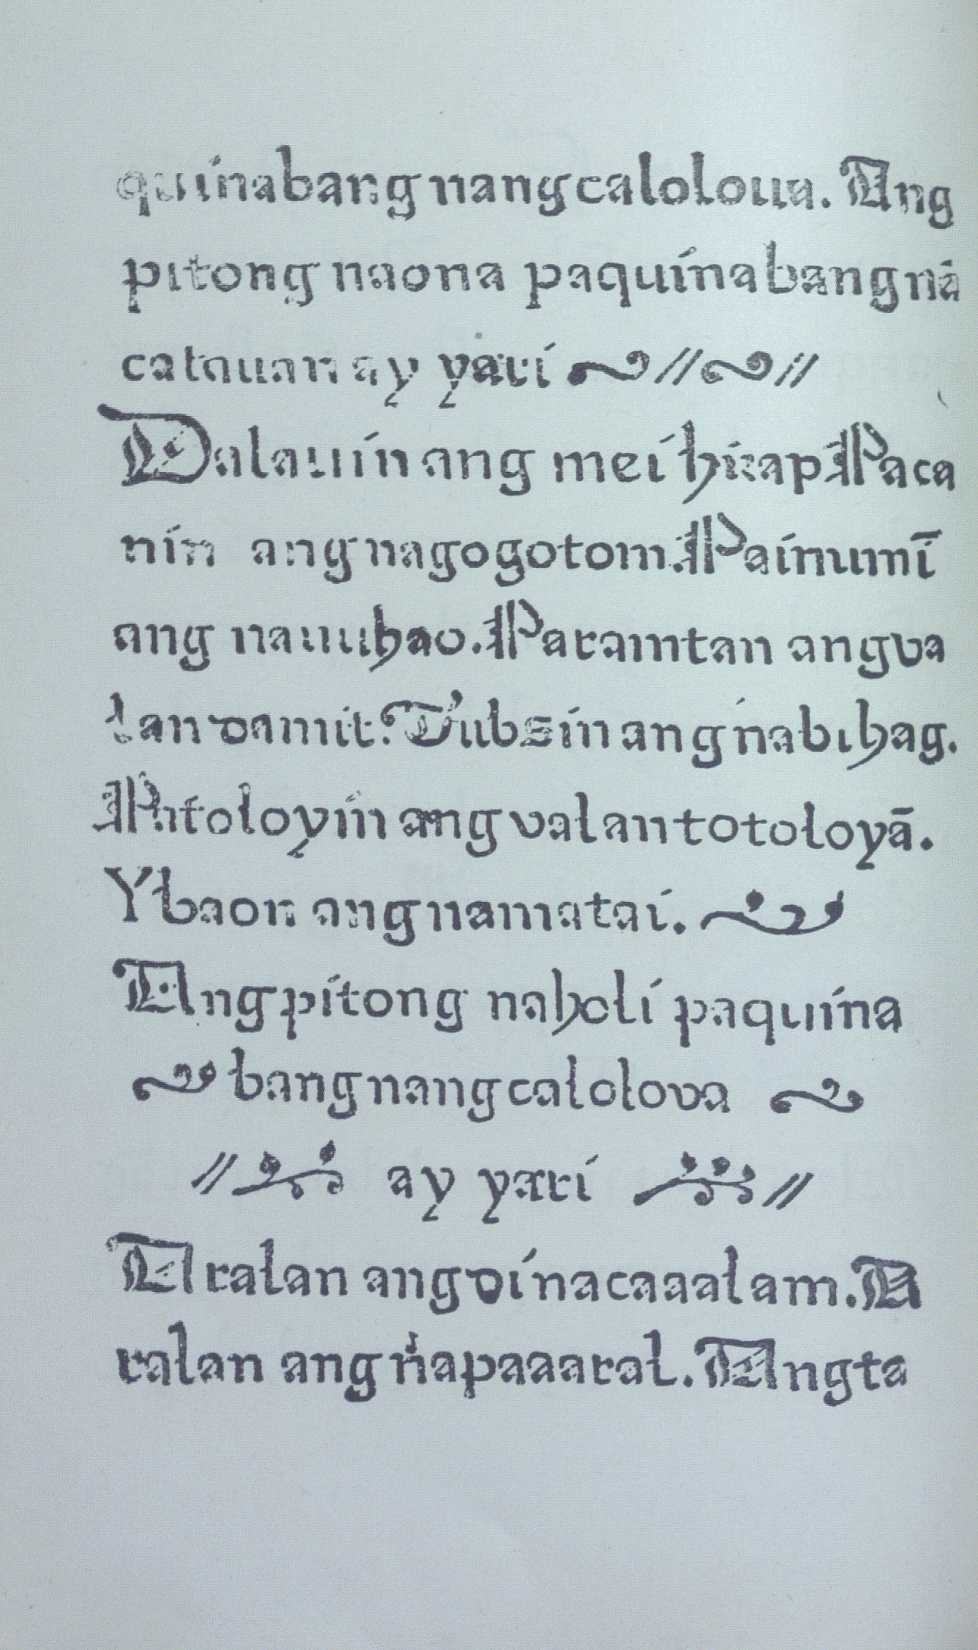 quinabang nang caloloua. Ang
pitong naona paquinabang nā
catauan ay yari
Dalauin ang mei hirap. Paca
nin ang nagogotom. Painumī
ang nauuhao. Paramtan ang va
lan damit. Tubsin ang nabihag.
Patoloyin ang valan totoloyā.
Ybaon ang namatai.
Ang pitong naholi paquina
bang nang calolova
ay yari
Aralan ang dinacaaalam. A
ralan ang napaaaral. Ang ta